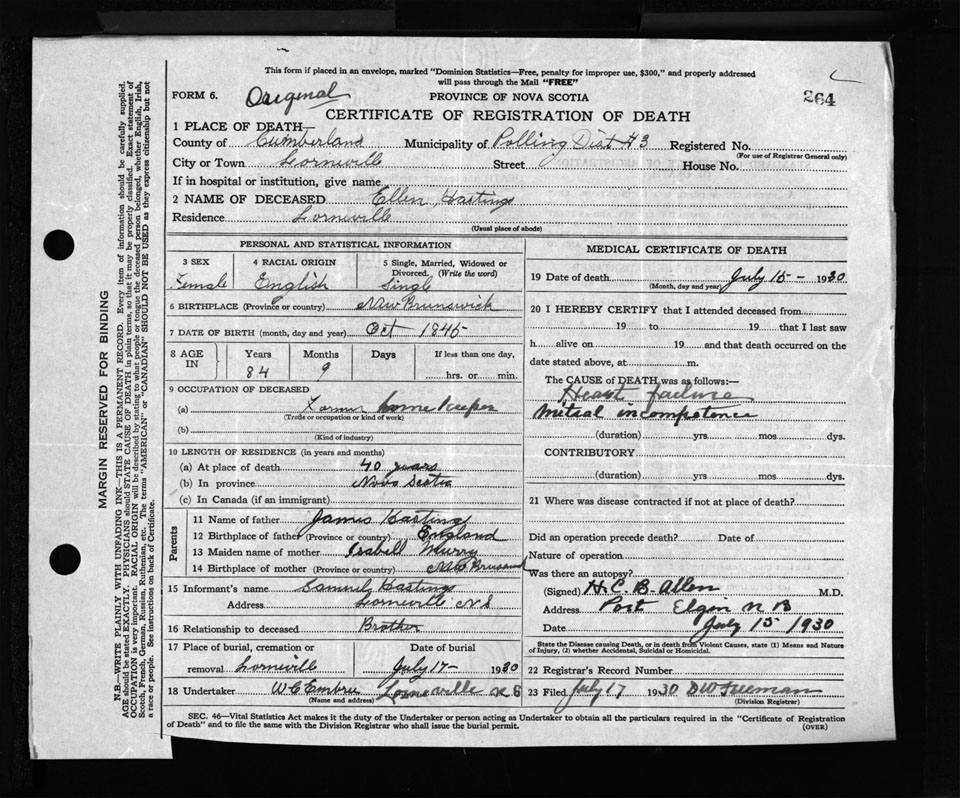 This form if placed in an envelope, marked "Dominion Statistics—Free, penalty for improper use, $300," and properly addressed
will pass through the Mail "FREE"
FORM 6. Original PROVINCE OF NOVA SCOTIA 264
CERTIFICATE OF REGISTRATION OF DEATH
1 PLACE OF DEATH—
County of Cumberland Municipality of Polling Dist 43 Registered No.
(For use of Registrar General only)
City or Town Lorneville Street House No.
If in hospital or institution, give name
2 NAME OF DECEASED Ellen Hastings
Residence Lorneville
(Usual place of abode)
PERSONAL AND STATISTICAL INFORMATION
3 SEX 4 RACIAL ORIGIN 5 Single, Married, Widowed or
Divorced. (Write the word)
Female English Single
6 BIRTHPLACE (Province or country) New Brunswick
7 DATE OF BIRTH (month, day and year) Oct 1845
8 AGE IN Years Months Days If less than one day,
84 9 hrs. or min.
9 OCCUPATION OF DECEASED
(a) Former home keeper
(Trade or occupation or kind of work)
(b)
(Kind of industry)
10 LENGTH OF RESIDENCE (in years and months)
(a) At place of death 40 years
(b) In province Nova Scotia
(c) In Canada (if an immigrant)
Parents
11 Name of father James Hasting
12 Birthplace of father (Province or country) England
13 Maiden name of mother Isabell Murry
14 Birthplace of mother (Province or country) New Brunswick
15 Informant's name Samuel Hastings
Address Lorneville N S
16 Relationship to deceased Brother
17 Place of burial, cremation or Date of burial
removal Lorneville July 17— 1930
18 Undertaker W C Embree Lorneville N S
(Name and address)
MEDICAL CERTIFICATE OF DEATH
19 Date of death July 15— 1930
(Month, day and year)
20 I HEREBY CERTIFY that I attended deceased from
19 to 19 that I last saw
h alive on 19 and that death occurred on the
date stated above, at m.
The CAUSE of DEATH was as follows:—
Heart failure
Mitral incompetence
(duration) yrs. mos dys.
CONTRIBUTORY
(duration) yrs. mos dys.
21 Where was disease contracted if not at place of death?
Did an operation precede death? Date of
Nature of operation
Was there an autopsy?
(Signed) H. C. B. Allen M.D.
Address Port Elgin N B
Date July 15 1930
State the Disease causing Death, or in death from Violent Causes, state (1) Means and Nature
of Injury, (2) whether Accidental, Suicidal or Homicidal.
22 Registrar's Record Number
23 Filed July 17 1930 D W Freeman
(Division Registrar)
SEC. 46—Vital Statistics Act makes it the duty of the Undertaker or person acting as Undertaker to obtain all the particulars required in the "Certificate of Registration
of Death" and to file the same with the Division Registrar who shall issue the burial permit.
(OVER)
MARGIN RESERVED FOR BINDING
N.B.—WRITE PLAINLY WITH UNFADING INK—THIS IS A PERMANENT RECORD. Every item of information should be carefully supplied.
AGE should be stated EXACTLY. PHYSICIANS should STATE CAUSE OF DEATH in plain terms, so that it may be properly classified. Exact statement of
OCCUPATION is very important. RACIAL ORIGIN will be described by stating to what people or tongue the deceased person belonged, whether English, Irish,
Scotch, French, German, Russian, Ruthenian, etc. The terms "AMERICAN" or "CANADIAN" SHOULD NOT BE USED as they express citizenship but not
a race or people. See instructions on back of Certificate.